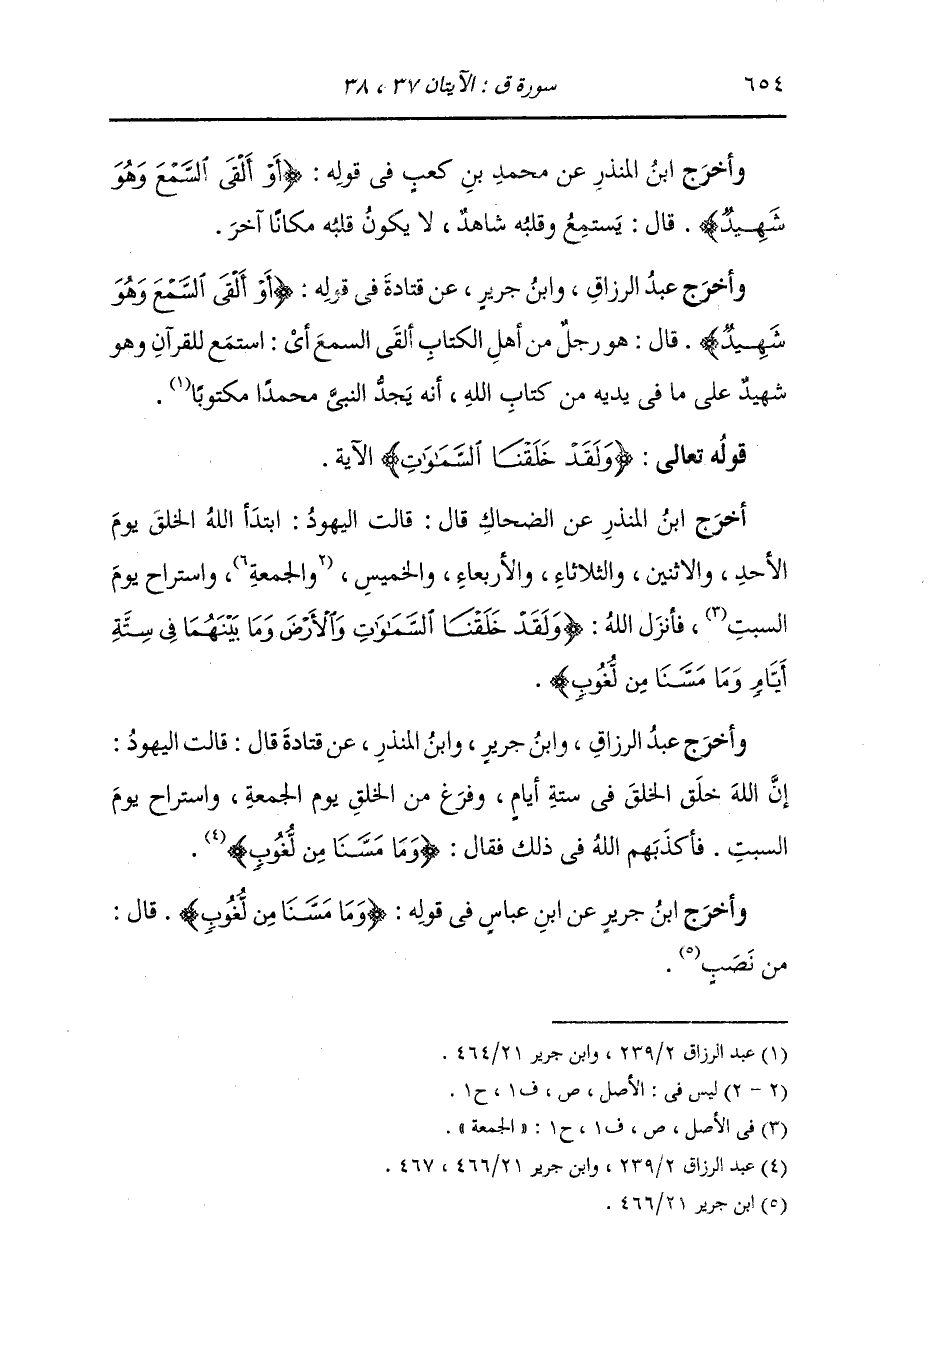 ٦٥٤ سورة ق : الآيتان ٣٧ ، ٣٨
وأخرَج ابنُ المنذرِ عن محمدِ بنِ كعبٍ فى قولِه : ﴿أَوْ أَلْقَى ٱلسَّمْعَ وَهُوَ
شَهِيدٌ﴾ . قال : يَستمِعُ وقلبُه شاهدٌ ، لا يكونُ قلبُه مكانًا آخرَ .
وأخرَج عبدُ الرزاقِ ، وابنُ جريرٍ ، عن قتادةَ فى قولِه : ﴿أَوْ أَلْقَى ٱلسَّمْعَ وَهُوَ
شَهِيدٌ﴾ . قال : هو رجلٌ من أهلِ الكتابِ ألقَى السمعَ أىْ : استمَع للقرآنِ وهو
شهيدٌ على ما فى يديه من كتابِ اللهِ ، أنه يَجدُّ النبيَّ محمدًا مكتوبًا(١) .
قولُه تعالى : ﴿وَلَقَدْ خَلَقْنَا ٱلسَّمَٰوَٰتِ﴾ الآية .
أخرَج ابنُ المنذرِ عن الضحاكِ قال : قالت اليهودُ : ابتدَأ اللهُ الخلقَ يومَ
الأحدِ ، والاثنين ، والثلاثاءِ ، والأربعاءِ ، والخميسِ ، (٢والجمعةِ٦) ، واستراح يومَ
السبتِ(٣) ، فأنزَل اللهُ : ﴿وَلَقَدْ خَلَقْنَا ٱلسَّمَٰوَٰتِ وَٱلْأَرْضَ وَمَا بَيْنَهُمَا فِى سِتَّةِ
أَيَّامٍ وَمَا مَسَّنَا مِن لُّغُوبٍ﴾ .
وأخرَج عبدُ الرزاقِ ، وابنُ جريرٍ ، وابنُ المنذرِ ، عن قتادةَ قال : قالت اليهودُ :
إنَّ اللهَ خلَق الخلقَ فى ستةِ أيامٍ ، وفرَغ من الخلقِ يوم الجمعةِ ، واستراح يومَ
السبتِ . فأكذَبَهم اللهُ فى ذلك فقال : ﴿وَمَا مَسَّنَا مِن لُّغُوبٍ﴾(٤) .
وأخرَج ابنُ جريرٍ عن ابنِ عباسٍ فى قولِه : ﴿وَمَا مَسَّنَا مِن لُّغُوبٍ﴾ . قال :
من نَصَبٍ(٥) .
(١) عبد الرزاق ٢٣٩/٢ ، وابن جرير ٤٦٤/٢١ .
(٢ - ٢) ليس فى : الأصل ، ص ، ف١ ، ح١ .
(٣) فى الأصل ، ص ، ف١ ، ح١ : « الجمعة » .
(٤) عبد الرزاق ٢٣٩/٢ ، وابن جرير ٤٦٦/٢١ ، ٤٦٧ .
(٥) ابن جرير ٤٦٦/٢١ .